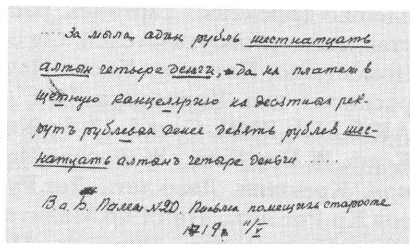 .... За мыла адин рубль шестнатцать
алтын четыре деньги, да на платеж в
щетную канцелярию на десятнаго рек-
рутъ рублевая денег девять рублев шес-
натцать алтынъ четыре деньги .....
В.а.Б. Палем №20. Письма помещика старосте
1719г. 11/V